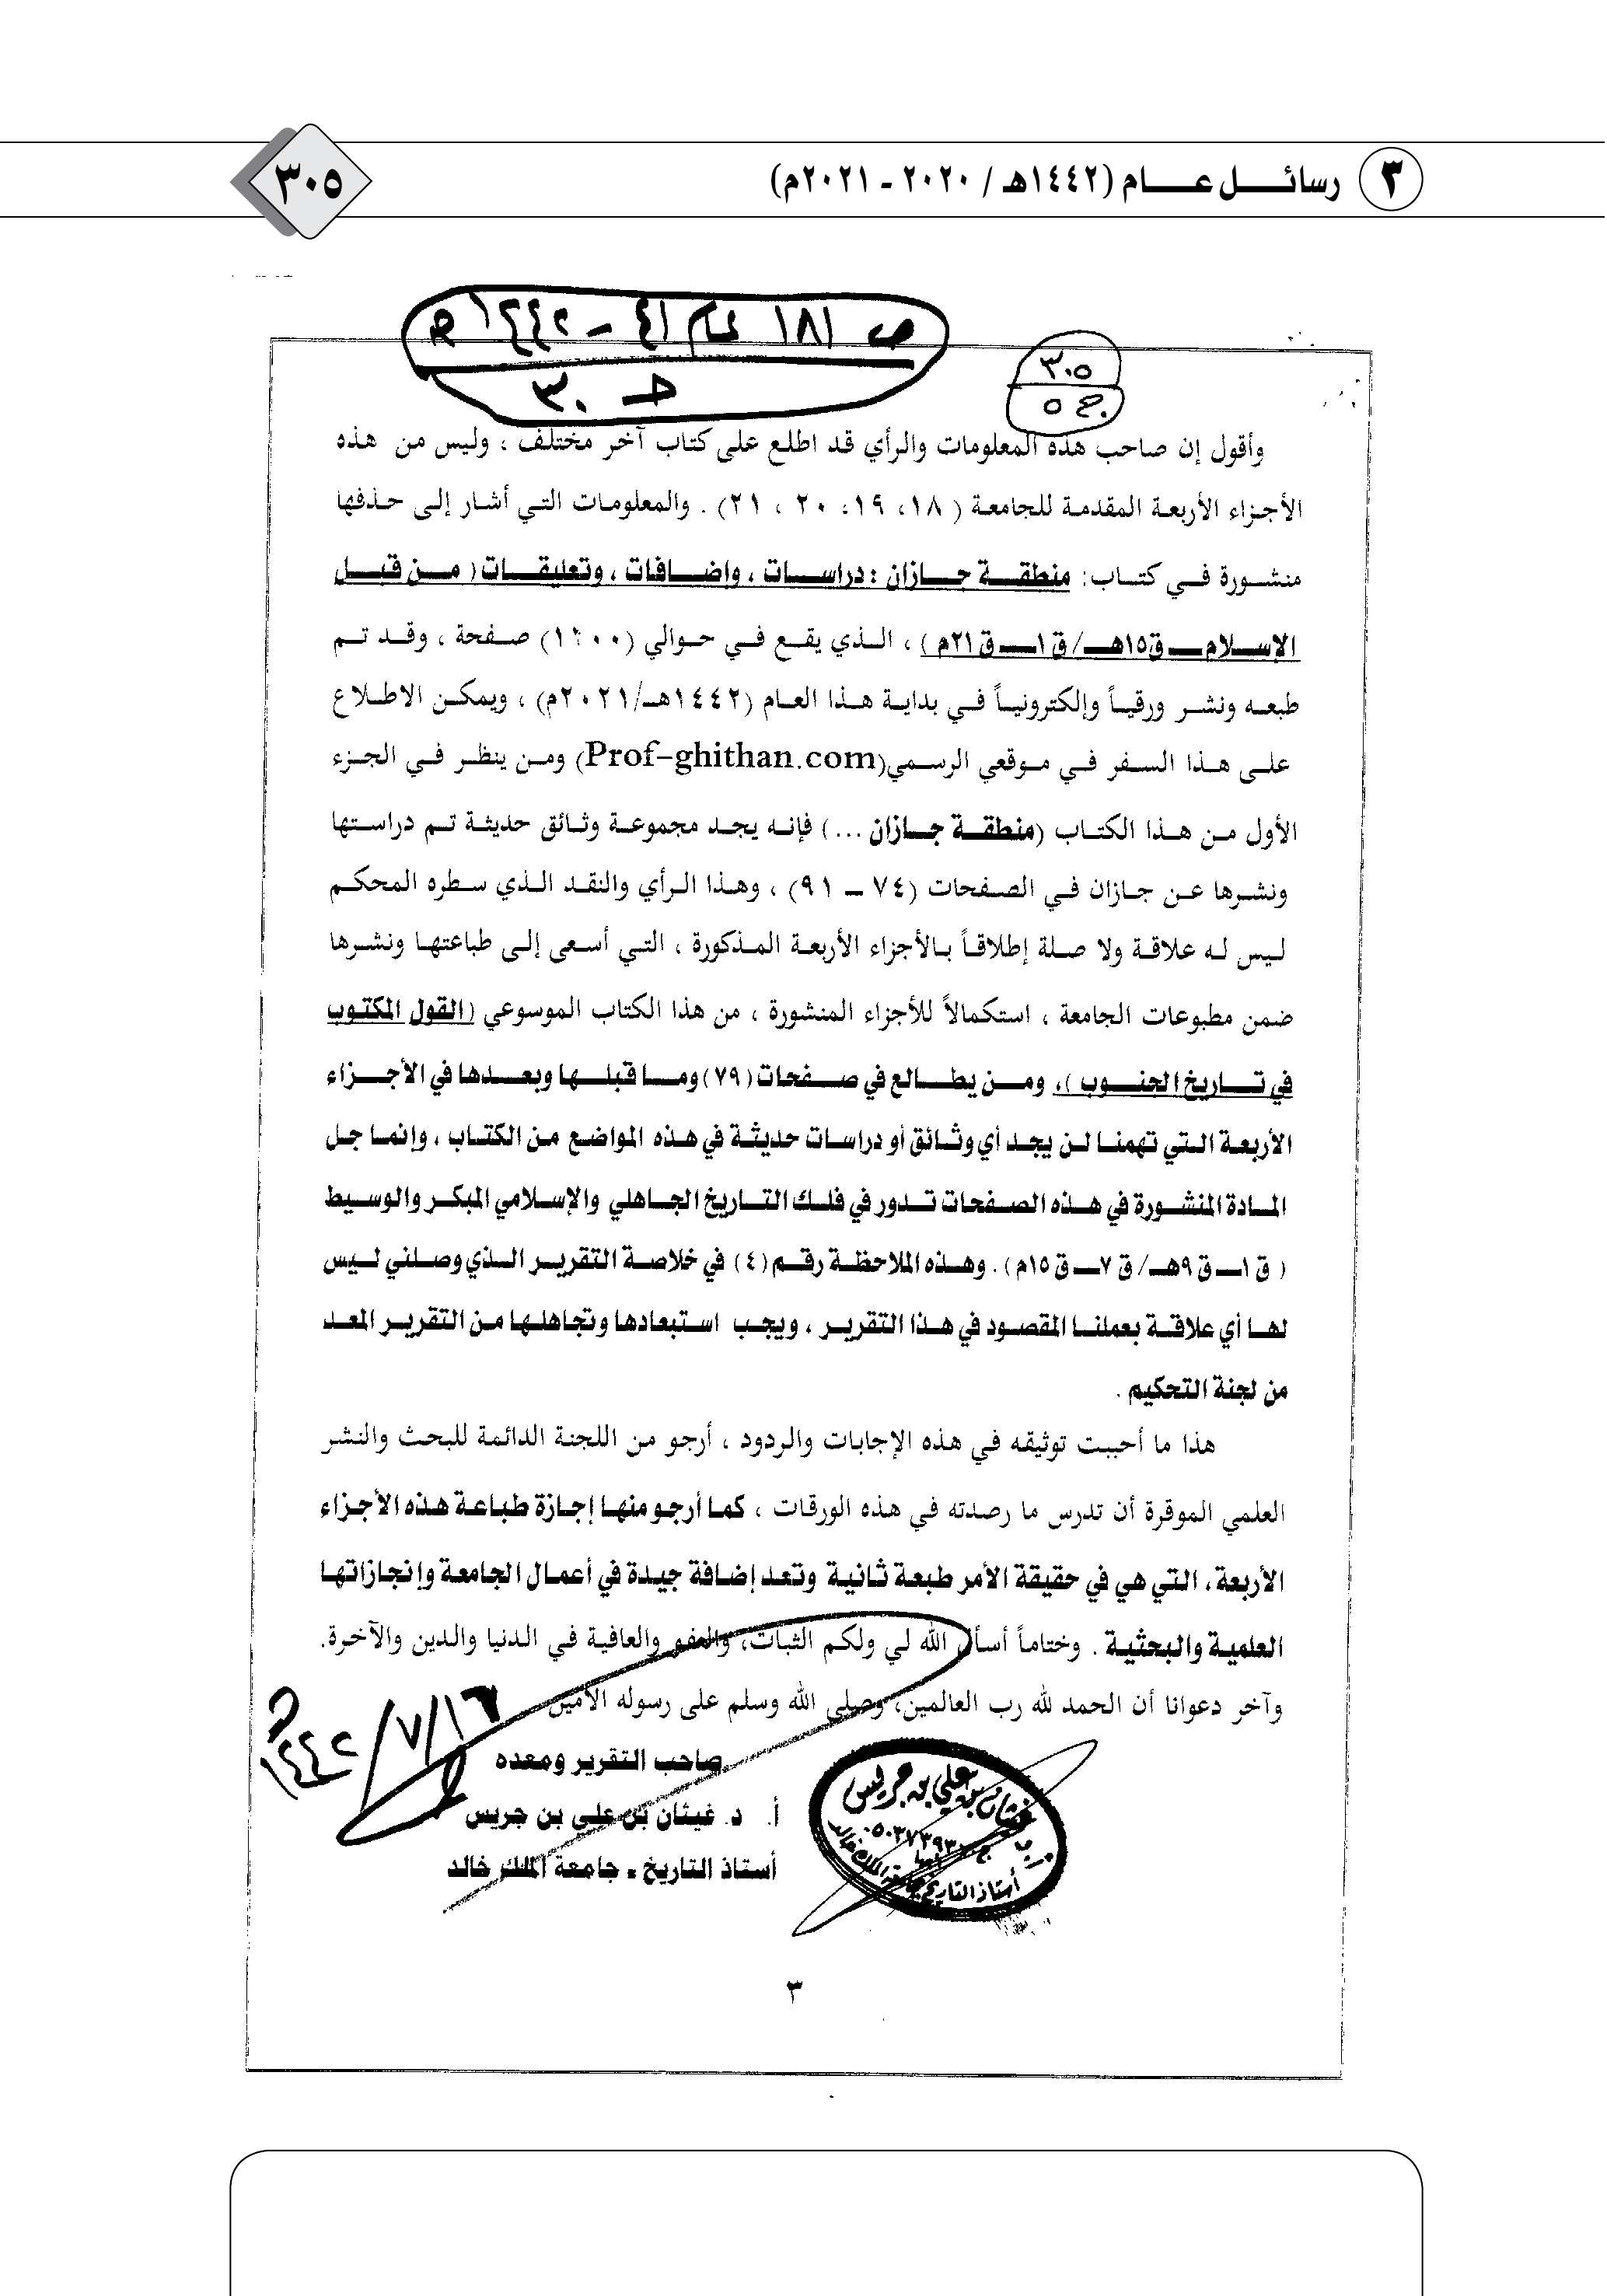 ٣ رسائل عام (١٤٤٢هـ / ٢٠٢٠ - ٢٠٢١م)
٣٠٥
ص ١٨١ عام ٤١ - ١٤٤٢هـ
حـ ٣٠
٣٠٥
ج ٥
وأقول إن صاحب هذه المعلومات والرأي قد اطلع على كتاب آخر مختلف ، وليس من هذه
الأجزاء الأربعة المقدمة للجامعة ( ١٨، ١٩، ٢٠ ، ٢١) . والمعلومات التي أشار إلى حذفها
منشورة في كتاب: منطقة جازان : دراسات ، وإضافات ، وتعليقات ( من قبل
الإسلام ـ ق١٥هـ/ ق١ـ ق٢١م ) ، الذي يقع في حوالي صفحة ، وقد تم
طبعه ونشر ورقياً وإلكترونياً في بداية هذا العام (١٤٤٢هـ/٢٠٢١م) ، ويمكن الاطلاع
على هذا السفر في موقعي الرسمي(Prof-ghithan.com) ومن ينظر في الجزء
الأول من هذا الكتاب (منطقة جازان ...) فإنه يجد مجموعة وثائق حديثة تم دراستها
ونشرها عن جازان في الصفحات (٧٤ – ٩١) ، وهذا الرأي والنقد الذي سطره المحكم
ليس له علاقة ولا صلة إطلاقاً بالأجزاء الأربعة المذكورة ، التي أسعى إلى طباعتها ونشرها
ضمن مطبوعات الجامعة ، استكمالاً للأجزاء المنشورة ، من هذا الكتاب الموسوعي (القول المكتوب
في تاريخ الجنوب )، ومن يطالع في صفحات (٧٩) وما قبلها وبعدها في الأجزاء
الأربعة التي تهمنا لن يجد أي وثائق أو دراسات حديثة في هذه المواضع من الكتاب ، وإنما جل
المادة المنشورة في هذه الصفحات تدور في فلك التاريخ الجاهلي والإسلامي المبكر والوسيط
( ق١ـ ق٩هـ/ ق٧ـ ق١٥م ) . وهذه الملاحظة رقم (٤) في خلاصة التقرير الذي وصلني ليس
لها أي علاقة بعملنا المقصود في هذا التقرير ، ويجب استبعادها وتجاهلها من التقرير المعد
من لجنة التحكيم .
هذا ما أحببت توثيقه في هذه الإجابات والردود ، أرجو من اللجنة الدائمة للبحث والنشر
العلمي الموقرة أن تدرس ما رصدته في هذه الورقات ، كما أرجو منها إجازة طباعة هذه الأجزاء
الأربعة ، التي هي في حقيقة الأمر طبعة ثانية وتعد إضافة جيدة في أعمال الجامعة وإنجازاتها
العلمية والبحثية . وختاماً أسأل الله لي ولكم الثبات، والعفو والعافية في الدنيا والدين والآخرة.
وآخر دعوانا أن الحمد لله رب العالمين، وصلى الله وسلم على رسوله الأمين
١٤٤٢/٧/١٦هـ
صاحب التقرير ومعده
أ. د. غيثان بن علي بن جريس
أستاذ التاريخ ـ جامعة الملك خالد
غيثان بن علي بن جريس
أستاذ التاريخ بجامعة الملك خالد
٣